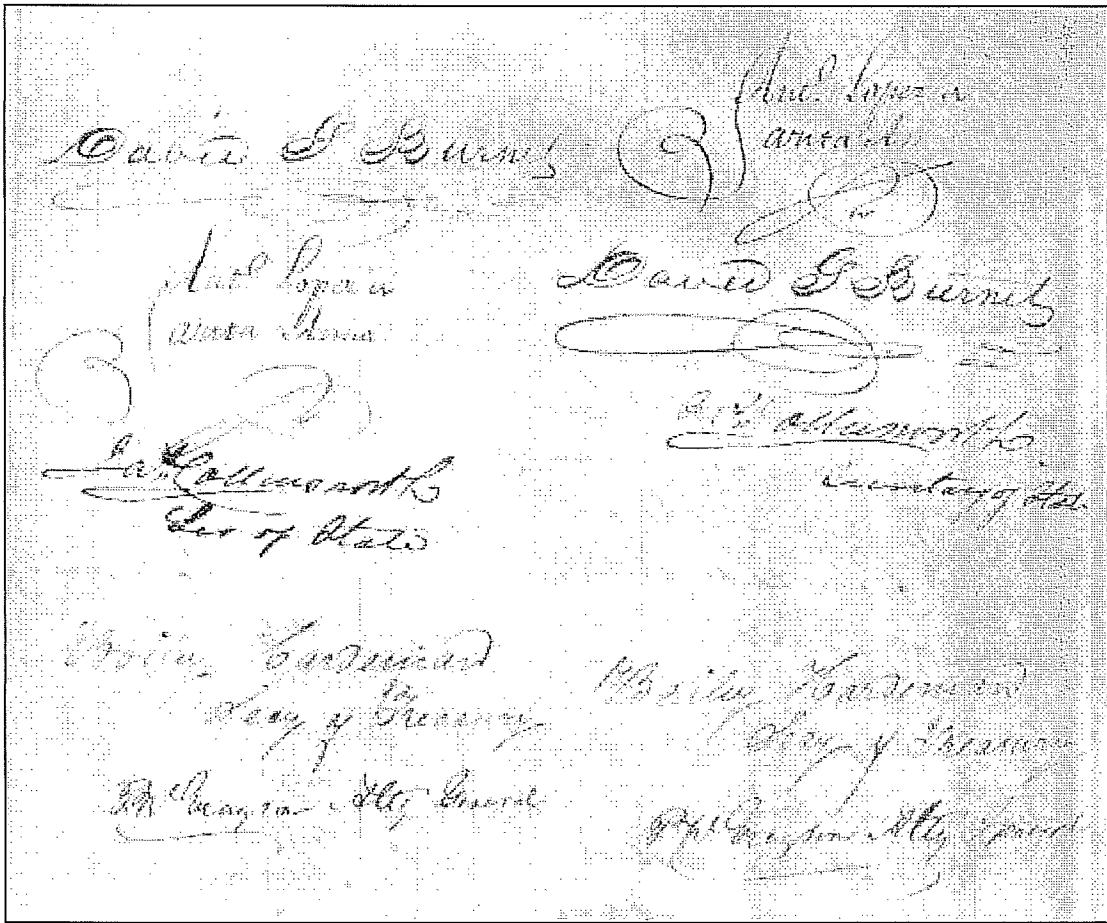 David G Burnet
Ant. Lopez de
Santa Anna
Jas Collinsworth
Sec of State
Bailey Hardeman
Secy of Treasury
P W Grayson Atty General
Ant. Lopez de
Santa Anna
David G Burnet
Jas Collinsworth
Secretary of State
Bailey Hardeman
Secy of Treasury
P W Grayson Atty General